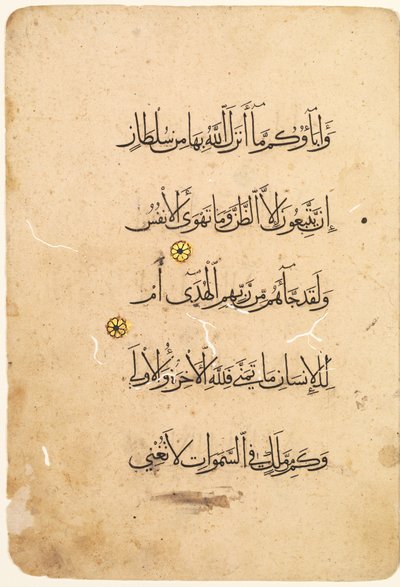 وَءَابَآؤُكُم مَّآ أَنزَلَ ٱللَّهُ بِهَا مِن سُلْطَانٍ
إِن يَتَّبِعُونَ إِلَّا ٱلظَّنَّ وَمَا تَهْوَى ٱلْأَنفُسُ
وَلَقَدْ جَآءَهُم مِّن رَّبِّهِمُ ٱلْهُدَىٰٓ أَمْ
لِلْإِنسَانِ مَا تَمَنَّىٰ فَلِلَّهِ ٱلْآخِرَةُ وَٱلْأُولَىٰ
وَكَم مِّن مَّلَكٍ فِي ٱلسَّمَوَاتِ لَا تُغْنِي